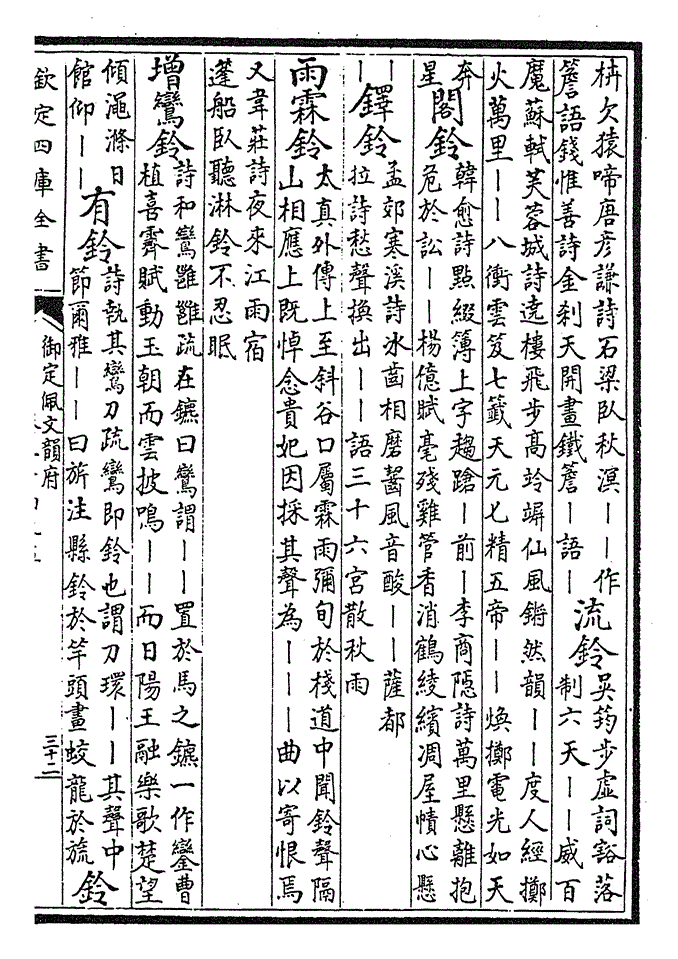 栟欠猿啼唐彦謙詩石梁臥秋溟——作
簷語錢惟善詩金刹天開畫鐵簷—語—
流鈴
吳筠步虛詞豁落
制六天——威百
魔蘇軾芙蓉城詩遶樓飛步高竛竮仙風鏘然韻——度人經擲
火萬里——八衝雲笈七籤天元七精五帝——煥擲電光如天
奔
星
閣鈴
韓愈詩㸃綴簿上字趨蹌—前—李商隱詩萬里懸離抱
危於訟——楊億賦毫殘雞管香消鶴綾繽凋屋幘心懸
——
鐸鈴
孟郊寒溪詩冰齒相磨齧風音酸——薩都
拉詩愁聲換出——語三十六宮散秋雨
雨霖鈴
太真外傳上至斜谷口屬霖雨彌旬於棧道中聞鈴聲隔
山相應上既悼念貴妃因採其聲為———曲以寄恨焉
又韋莊詩夜來江雨宿
蓬船臥聽淋鈴不忍眠
增
鸞鈴
詩和鸞雝雝疏在鑣曰鸞謂——置於馬之鑣一作鑾曹
植喜霽賦動玉朝而雲披鳴——而日陽王融樂歌楚望
傾澠滌日
館仰——
有鈴
詩執其鸞刀疏鸞即鈴也謂刀環——其聲中
節爾雅——曰旂注縣鈴於竿頭畫蛟龍於旒
鈴
欽定四庫全書
御定佩文韻府
三十二